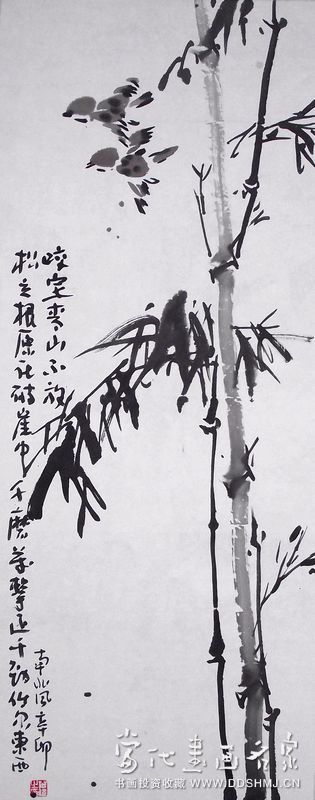 咬定青山不放
松立根原在破崖中千磨萬擊还任尔東西
南北风辛卯
当代書画名家
书画投资收藏 WWW.DDSHMJ.CN